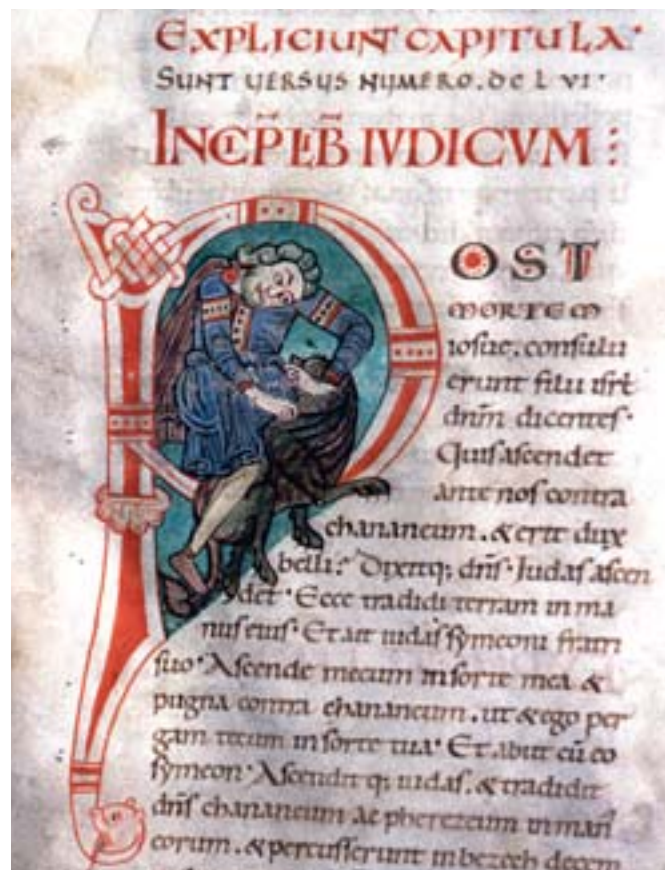 EXPLICIUNT CAPITULA·
SUNT VERSUS NUMERO. DCLVI·
INCIP̄ LIB̄ IVDICVM :
POST
MORTEM
iosue. consulu
erunt filii isrł
dn̄m dicentes·
Quis ascendet
ante nos contra
chananeum. & erit dux
belli? Dixitq; dn̄s· Judas ascen
det· Ecce tradidi terram in ma
nus eius· Et ait iudas symeoni fratri
suo· Ascende mecum in sorte mea &
pugna contra chananeum. ut & ego per
gam tecum in sorte tua· Et abiit cū eo
symeon· Ascenditq; iudas. & tradidit
dn̄s chananeum ac pherezeum in man̄
eorum. & percusserunt in bezech decem